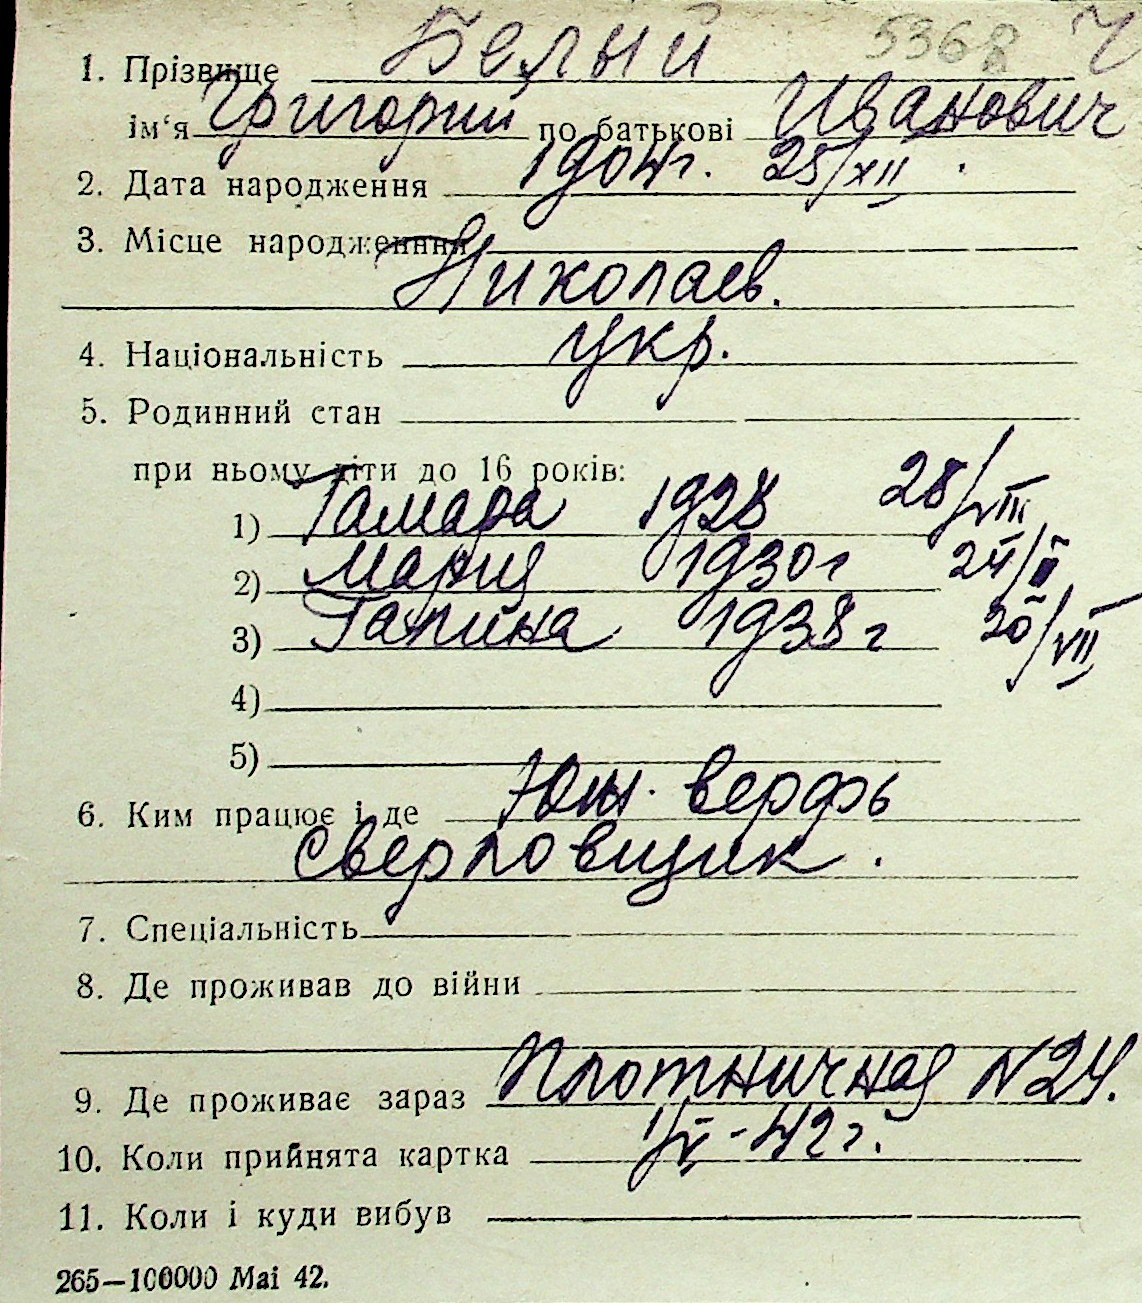 5368 Ч
1. Прізвище Белый
ім‘я Григорий по батькові Иванович
2. Дата народження 1904г. 25/XII
3. Місце народження
Николаев.
4. Національність укр.
5. Родинний стан
при ньому діти до 16 років:
1) Тамара 1928 28/VIII
2) Мария 1930г 24/II
3) Галина 1938г 20/VII
4)
5)
6. Ким працює і де Юж. верфь
Сверловщик.
7. Спеціальність
8. Де проживав до війни
9. Де проживає зараз Плотничная N24.
10. Коли прийнята картка 1/V-42г.
11. Коли і куди вибув
265—100000 Mai 42.